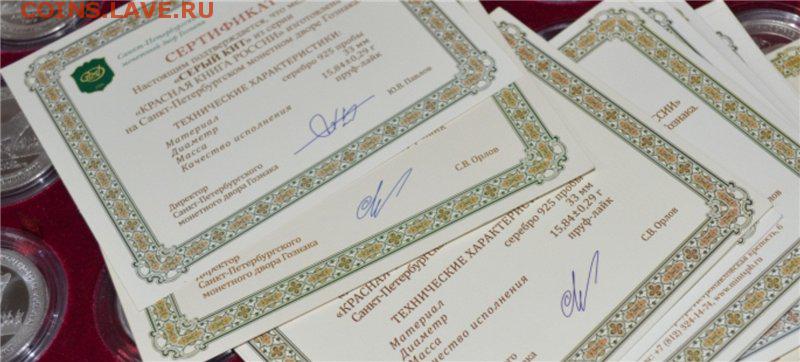 COINS.LAVE.RU
Санкт-Петербургский
монетный двор Гознака
СЕРТИФИКАТ
Настоящим подтверждается, что
«СЕРЫЙ КИТ» из серии
«КРАСНАЯ КНИГА РОССИИ» изготовлена
на Санкт-Петербургском монетном дворе Гознака
ТЕХНИЧЕСКИЕ ХАРАКТЕРИСТИКИ:
Материал серебро 925 пробы
Диаметр 33 мм
Масса 15,84±0,29 г
Качество исполнения пруф-лайк
Директор
Санкт-Петербургского
монетного двора Гознака
Ю.В. Павлов
директор
Санкт-Петербургского
монетного двора Гознака
С.В. Орлов
«КРАСНАЯ
Санкт-Петербург
ТЕХНИЧЕСКИЕ ХАРАКТЕРИС
Материал серебро 925 пробы
Диаметр 33 мм
Масса 15,84±0,29 г
Качество исполнения пруф-лайк
С.В. Орлов
ССИИ»
Гознака.
крепость, 6
+7 (812) 324-14-74, www.mintspb.ru